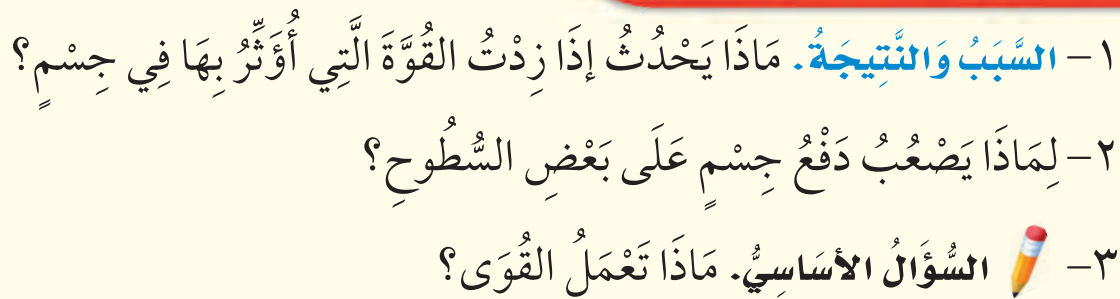 ١- السَّبَبُ وَالنَّتِيجَةُ. مَاذَا يَحْدُثُ إِذَا زِدْتُ القُوَّةَ الَّتِي أُؤَثِّرُ بِهَا فِي جِسْمٍ؟
٢- لِمَاذَا يَصْعُبُ دَفْعُ جِسْمٍ عَلَى بَعْضِ السُّطُوحِ؟
٣- السُّؤَالُ الأَسَاسِيُّ. مَاذَا تَعْمَلُ القُوَى؟